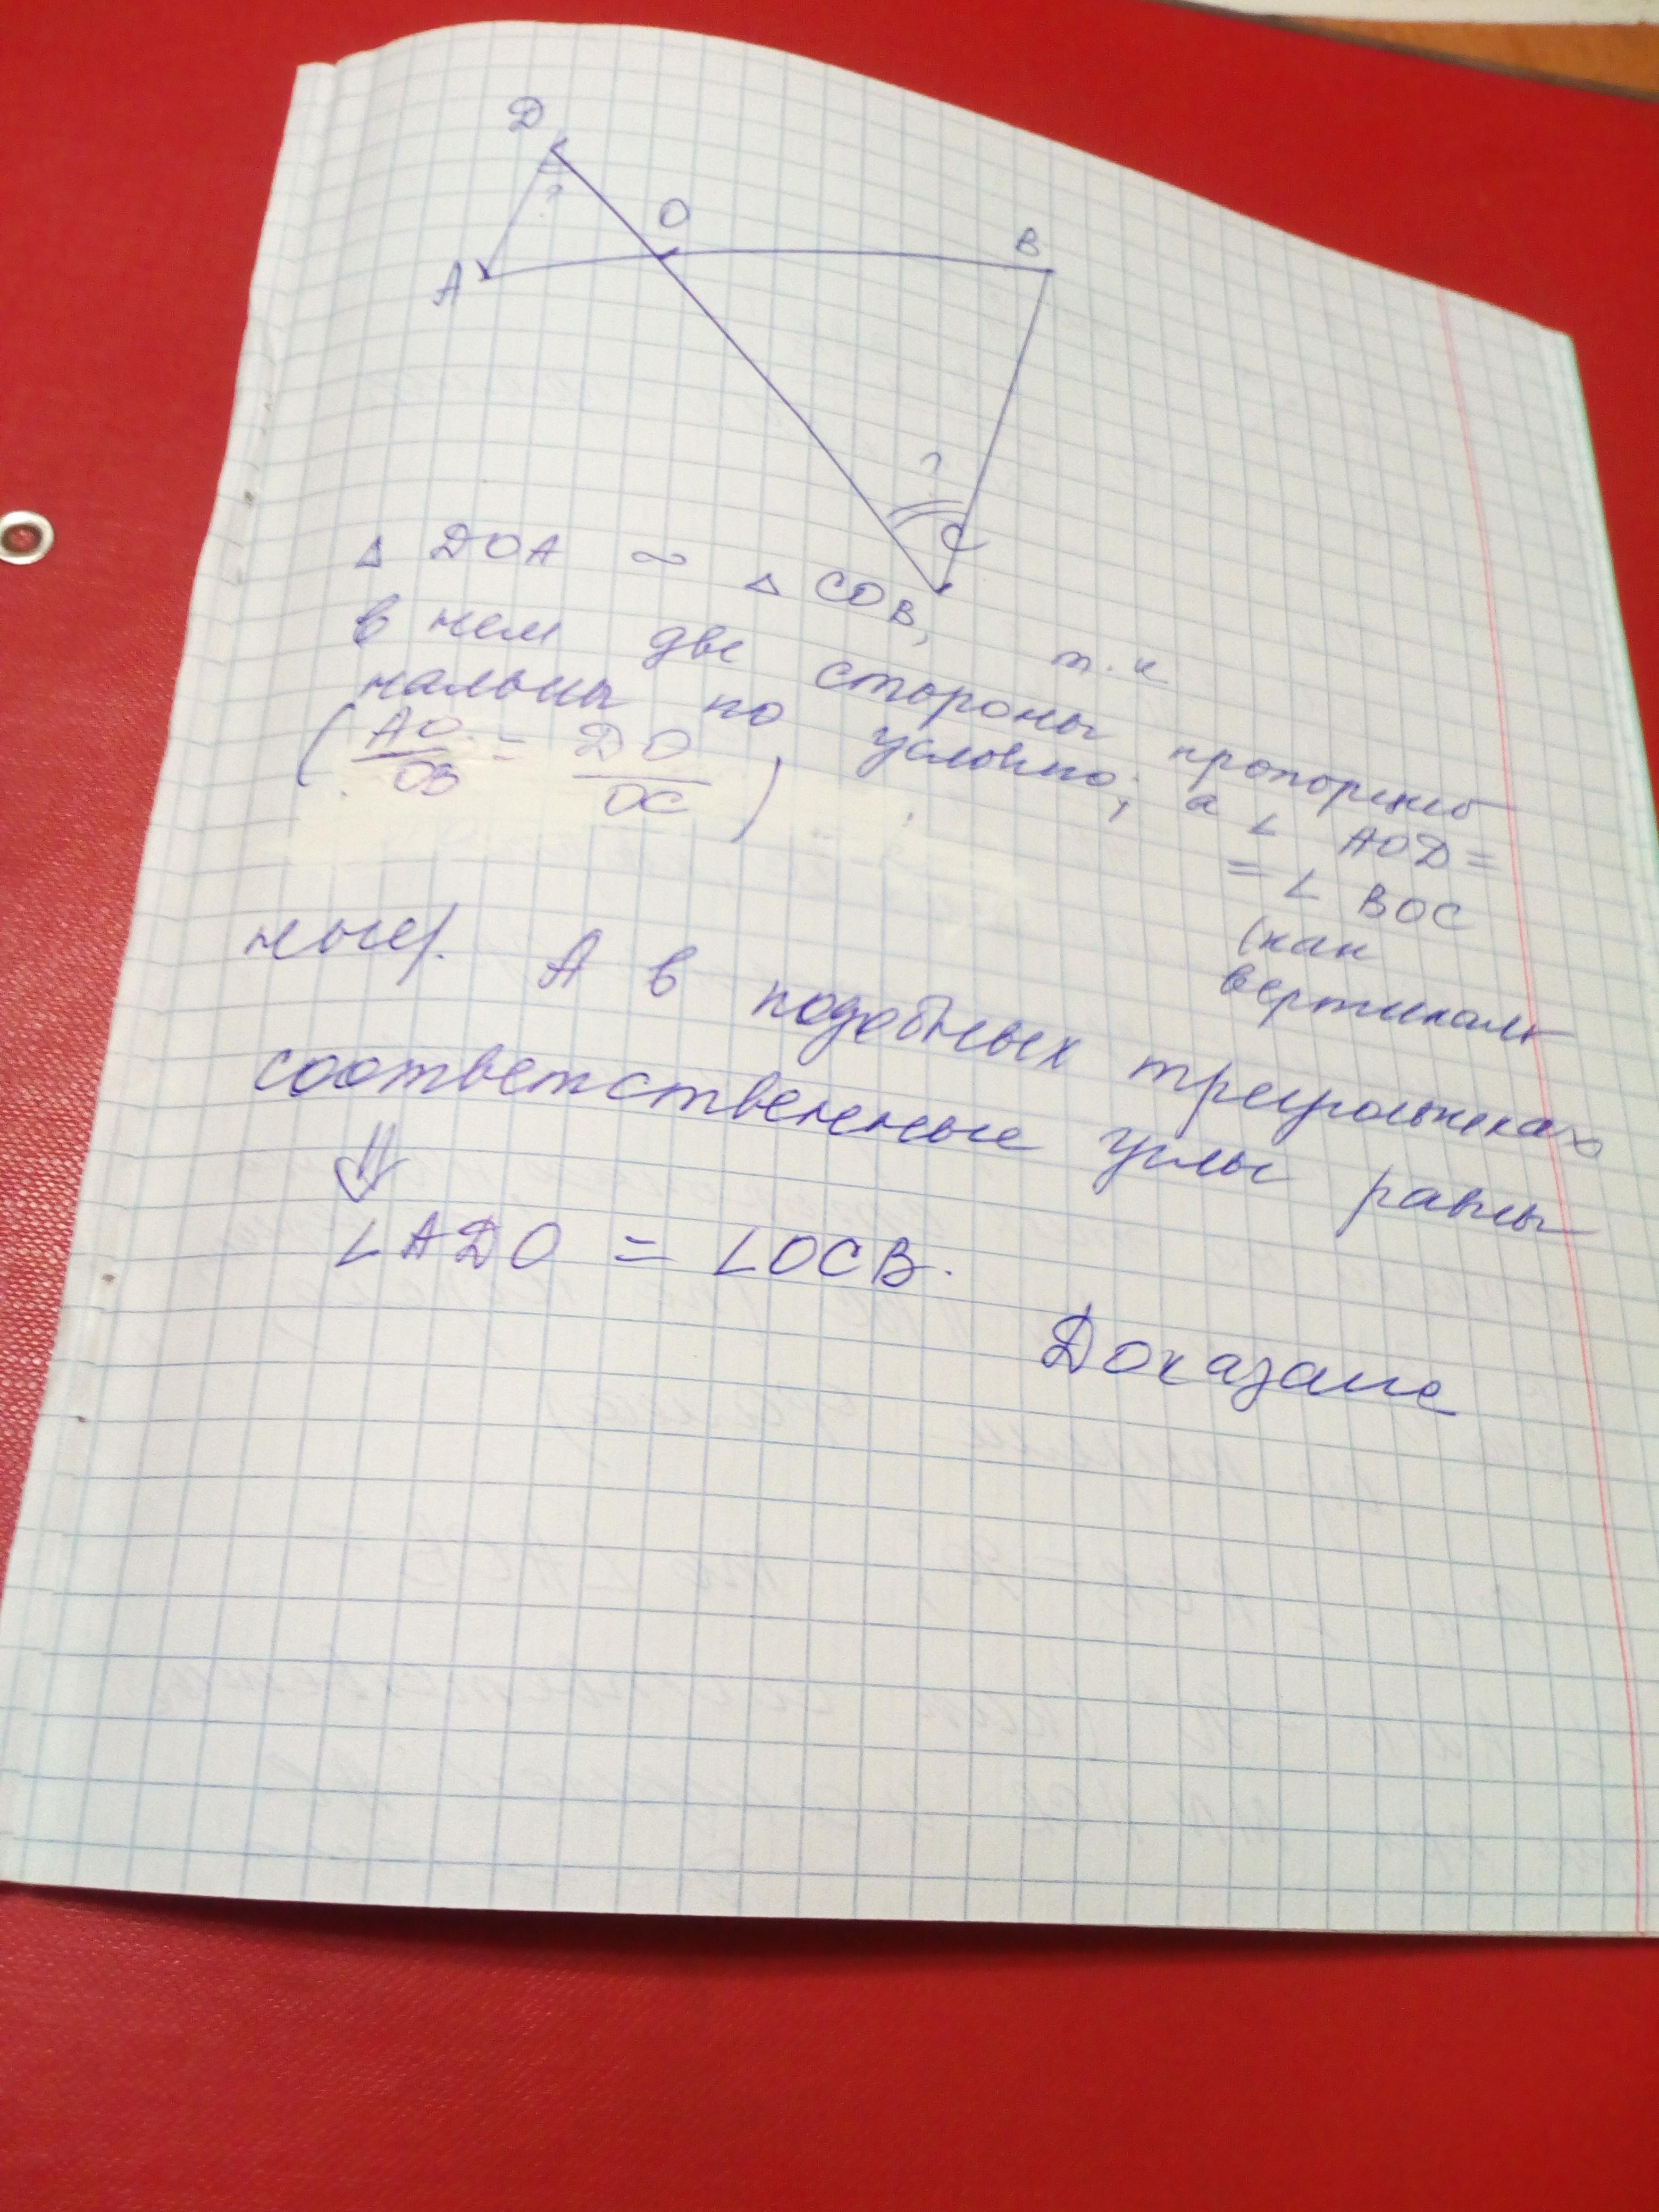 D
?
O
A
B
?
C
△ DOA ∽ △ COB, т.к
в нем две стороны пропорцио
нальны по условию; а ∠ AOD =
(AO/OB = DO/OC)
= ∠ BOC
(как
вертикаль
ные). А в подобных треугольниках
соответственные углы равны
⇓
∠ADO = ∠OCB.
Доказано